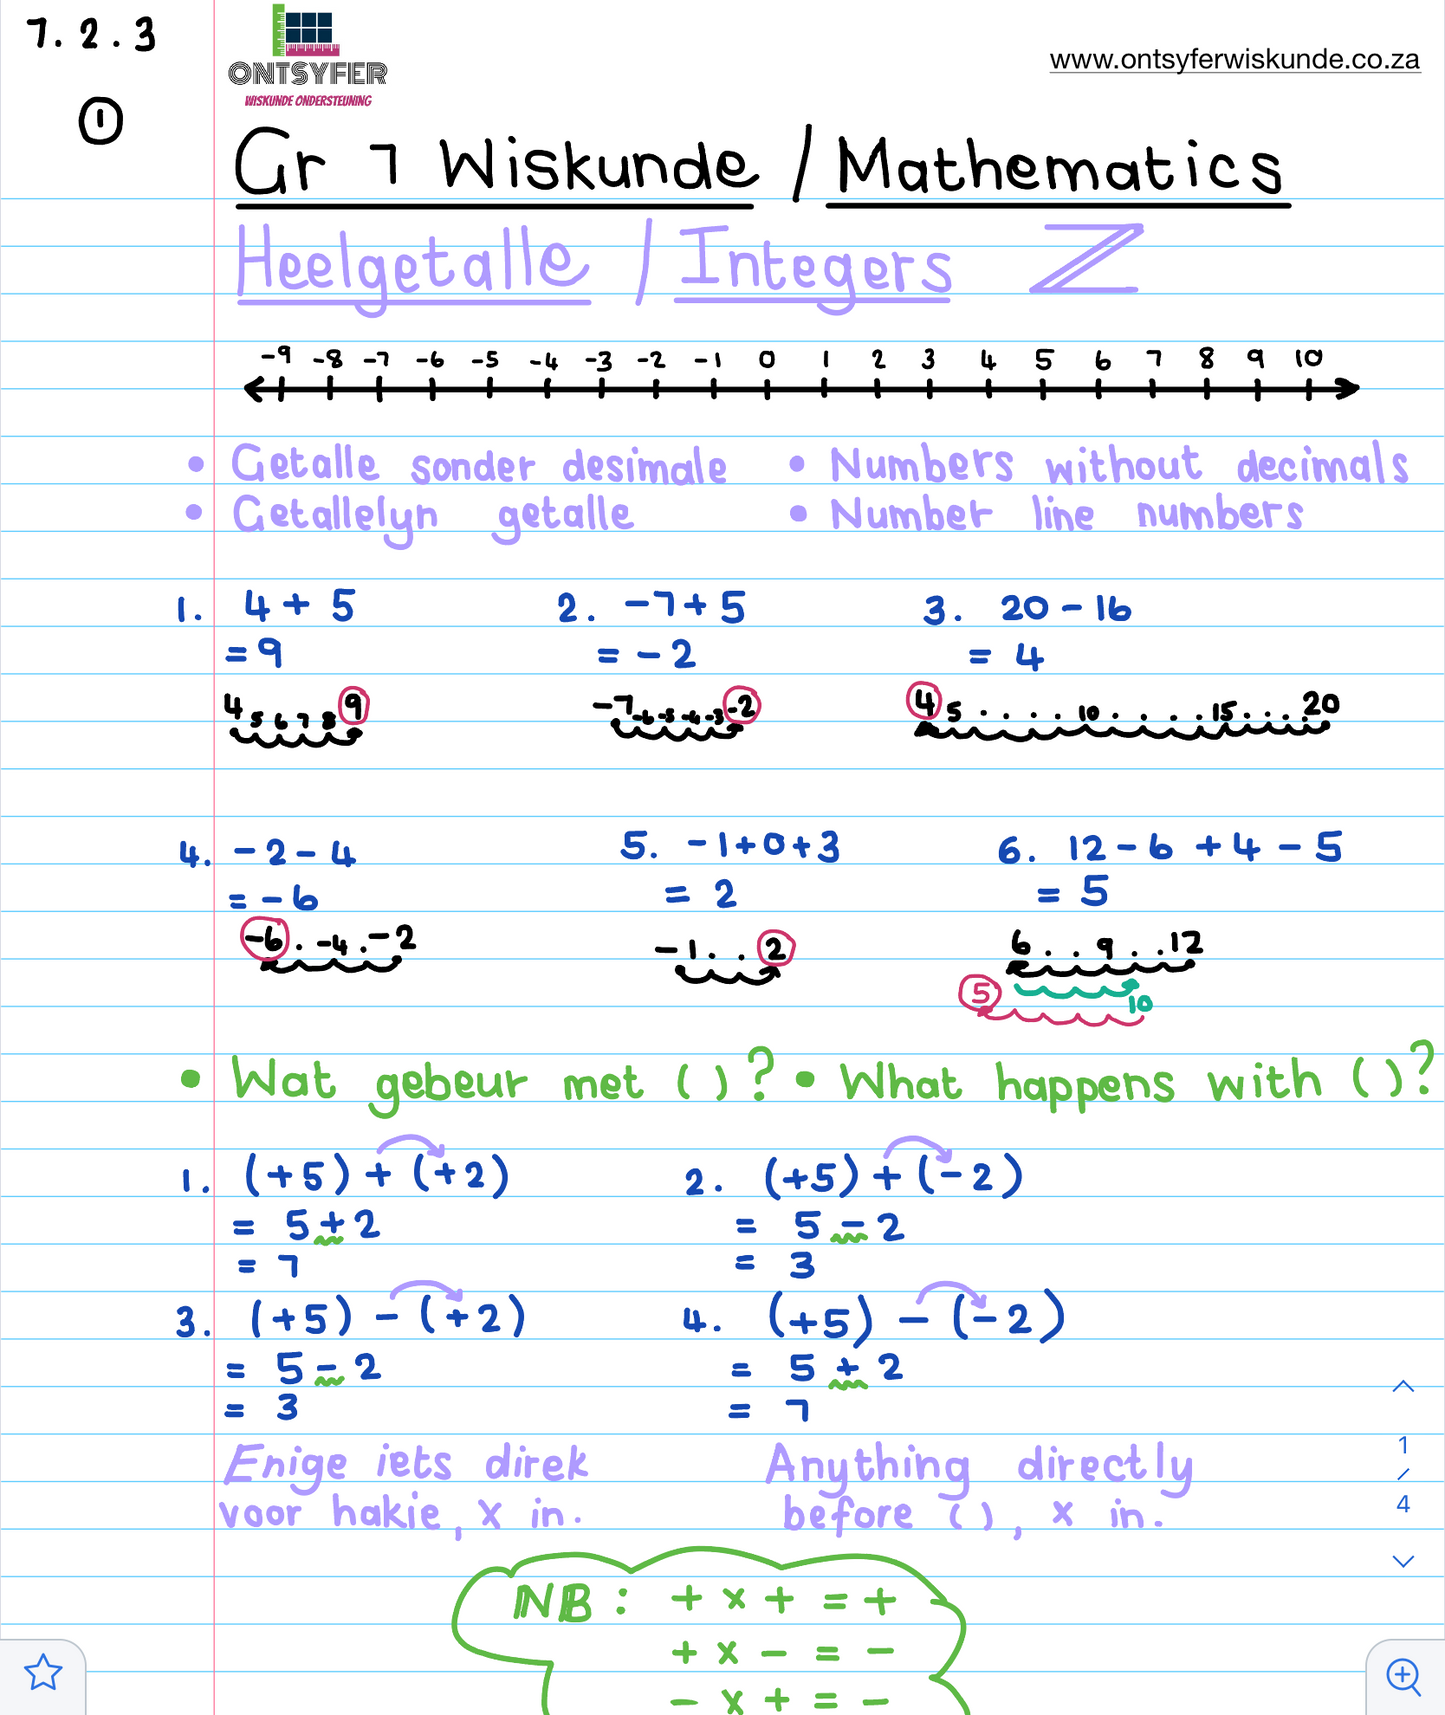 7.2.3
ONTSYFER
WISKUNDE ONDERSTEUNING
www.ontsyferwiskunde.co.za
1
Gr 7 Wiskunde / Mathematics
Heelgetalle / Integers ℤ
-9 -8 -7 -6 -5 -4 -3 -2 -1 0 1 2 3 4 5 6 7 8 9 10
• Getalle sonder desimale • Numbers without decimals
• Getallelyn getalle • Number line numbers
1. 4 + 5 2. -7 + 5 3. 20 - 16
= 9 = -2 = 4
4 5 6 7 8 9 -7 -6 -5 -4 -3 -2 4 5 . . . . 10 . . . . 15 . . . 20
4. -2 - 4 5. -1 + 0 + 3 6. 12 - 6 + 4 - 5
= -6 = 2 = 5
-6 . -4 . -2 -1 . . 2 6 . . 9 . . 12
5 10
• Wat gebeur met ( )? • What happens with ( )?
1. (+5) + (+2) 2. (+5) + (-2)
= 5 + 2 = 5 - 2
= 7 = 3
3. (+5) - (+2) 4. (+5) - (-2)
= 5 - 2 = 5 + 2
= 3 = 7
Enige iets direk Anything directly
voor hakie, x in. before ( ), x in.
NB: + x + = +
+ x - = -
- x + = -
1
/
4